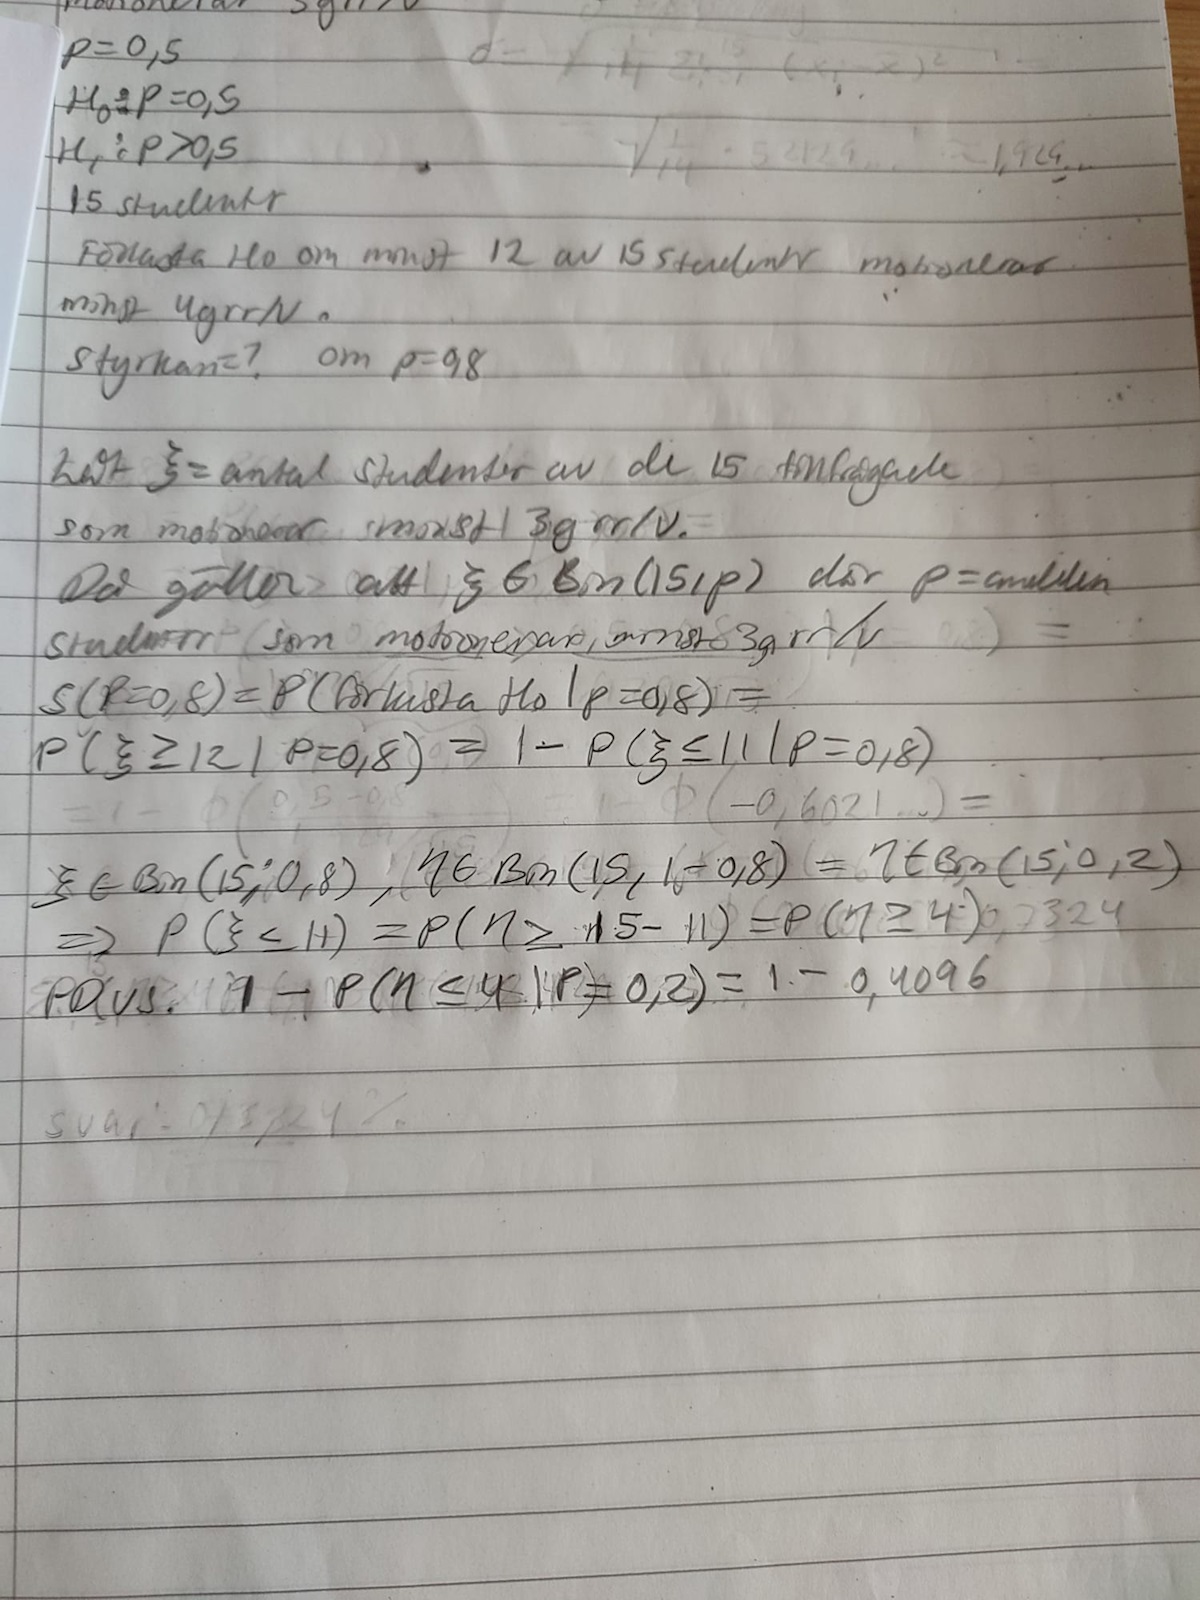 p=0,5
H0: P=0,5
H1: P>0,5
15 studentr
Förkasta H0 om minst 12 av 15 studentr motionerar
minst 4grr/v.
Styrkan=? om p=0,8
Låt ξ= antal studenter av de 15 tillfrågade
som motionerar minst 3grr/v.
Då gäller att ξ ∈ Bin(15, p) där p=andelen
studentr som motionerar minst 3grr/v
S(P=0,8) = P(förkasta H0 | p=0,8) =
P(ξ ≥ 12 | P=0,8) = 1 - P(ξ ≤ 11 | P=0,8)
= 1 - Φ(0,5-0,8 = 1 - Φ(-0,6021...) =
ξ ∈ Bin(15; 0,8), η ∈ Bin(15, 1-0,8) = η ∈ Bin(15; 0,2)
=> P(ξ ≤ 11) = P(η ≥ 15-11) = P(η ≥ 4)
Dvs. 1 - P(η ≤ 4 | P=0,2) = 1 - 0,4096
svar: